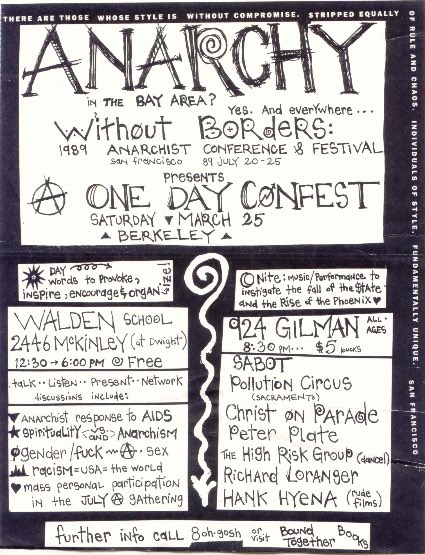 THERE ARE THOSE WHOSE STYLE IS WITHOUT COMPROMISE. STRIPPED EQUALLY
OF RULE AND CHAOS. INDIVIDUALS OF STYLE. FUNDAMENTALLY UNIQUE. SAN FRANCISCO
ANARCHY
in THE BAY AREA?
Yes. And everywhere...
Without Borders:
1989 ANARCHIST CONFERENCE & FESTIVAL
San francisco 89 JULY 20-25
presents
A ONE DAY CØNFEST
SATURDAY ▼ MARCH 25
▲ BERKELEY ▲
DAY
words to provoke,
inspire, encourage & organize!
WALDEN SCHOOL
2446 McKINLEY (at Dwight)
12:30 → 6:00 PM @ Free
.talk.. Listen.. Present. Network
discussions include:
▼ Anarchist response to AIDS
★ spirituality vs. AND Anarchism
gender/fuck Ⓐ. sex
racism=USA= the world
♥ mass personal participation
in the JULY Ⓐ gathering
Nite: music/Performance to
instigate the fall of the State
and the Rise of the Phoenix ♥
924 GILMAN ALL. AGES
8:30 PM... $5 bucks
SABOT
Pollution Circus
(SACRAMENTO)
Christ ØN Parade
Peter Plate
THE High Risk Group (dance!)
Richard Loranger
HANK HYENA (rude films)
further info call 8oh-gosh or visit Bound Together Books